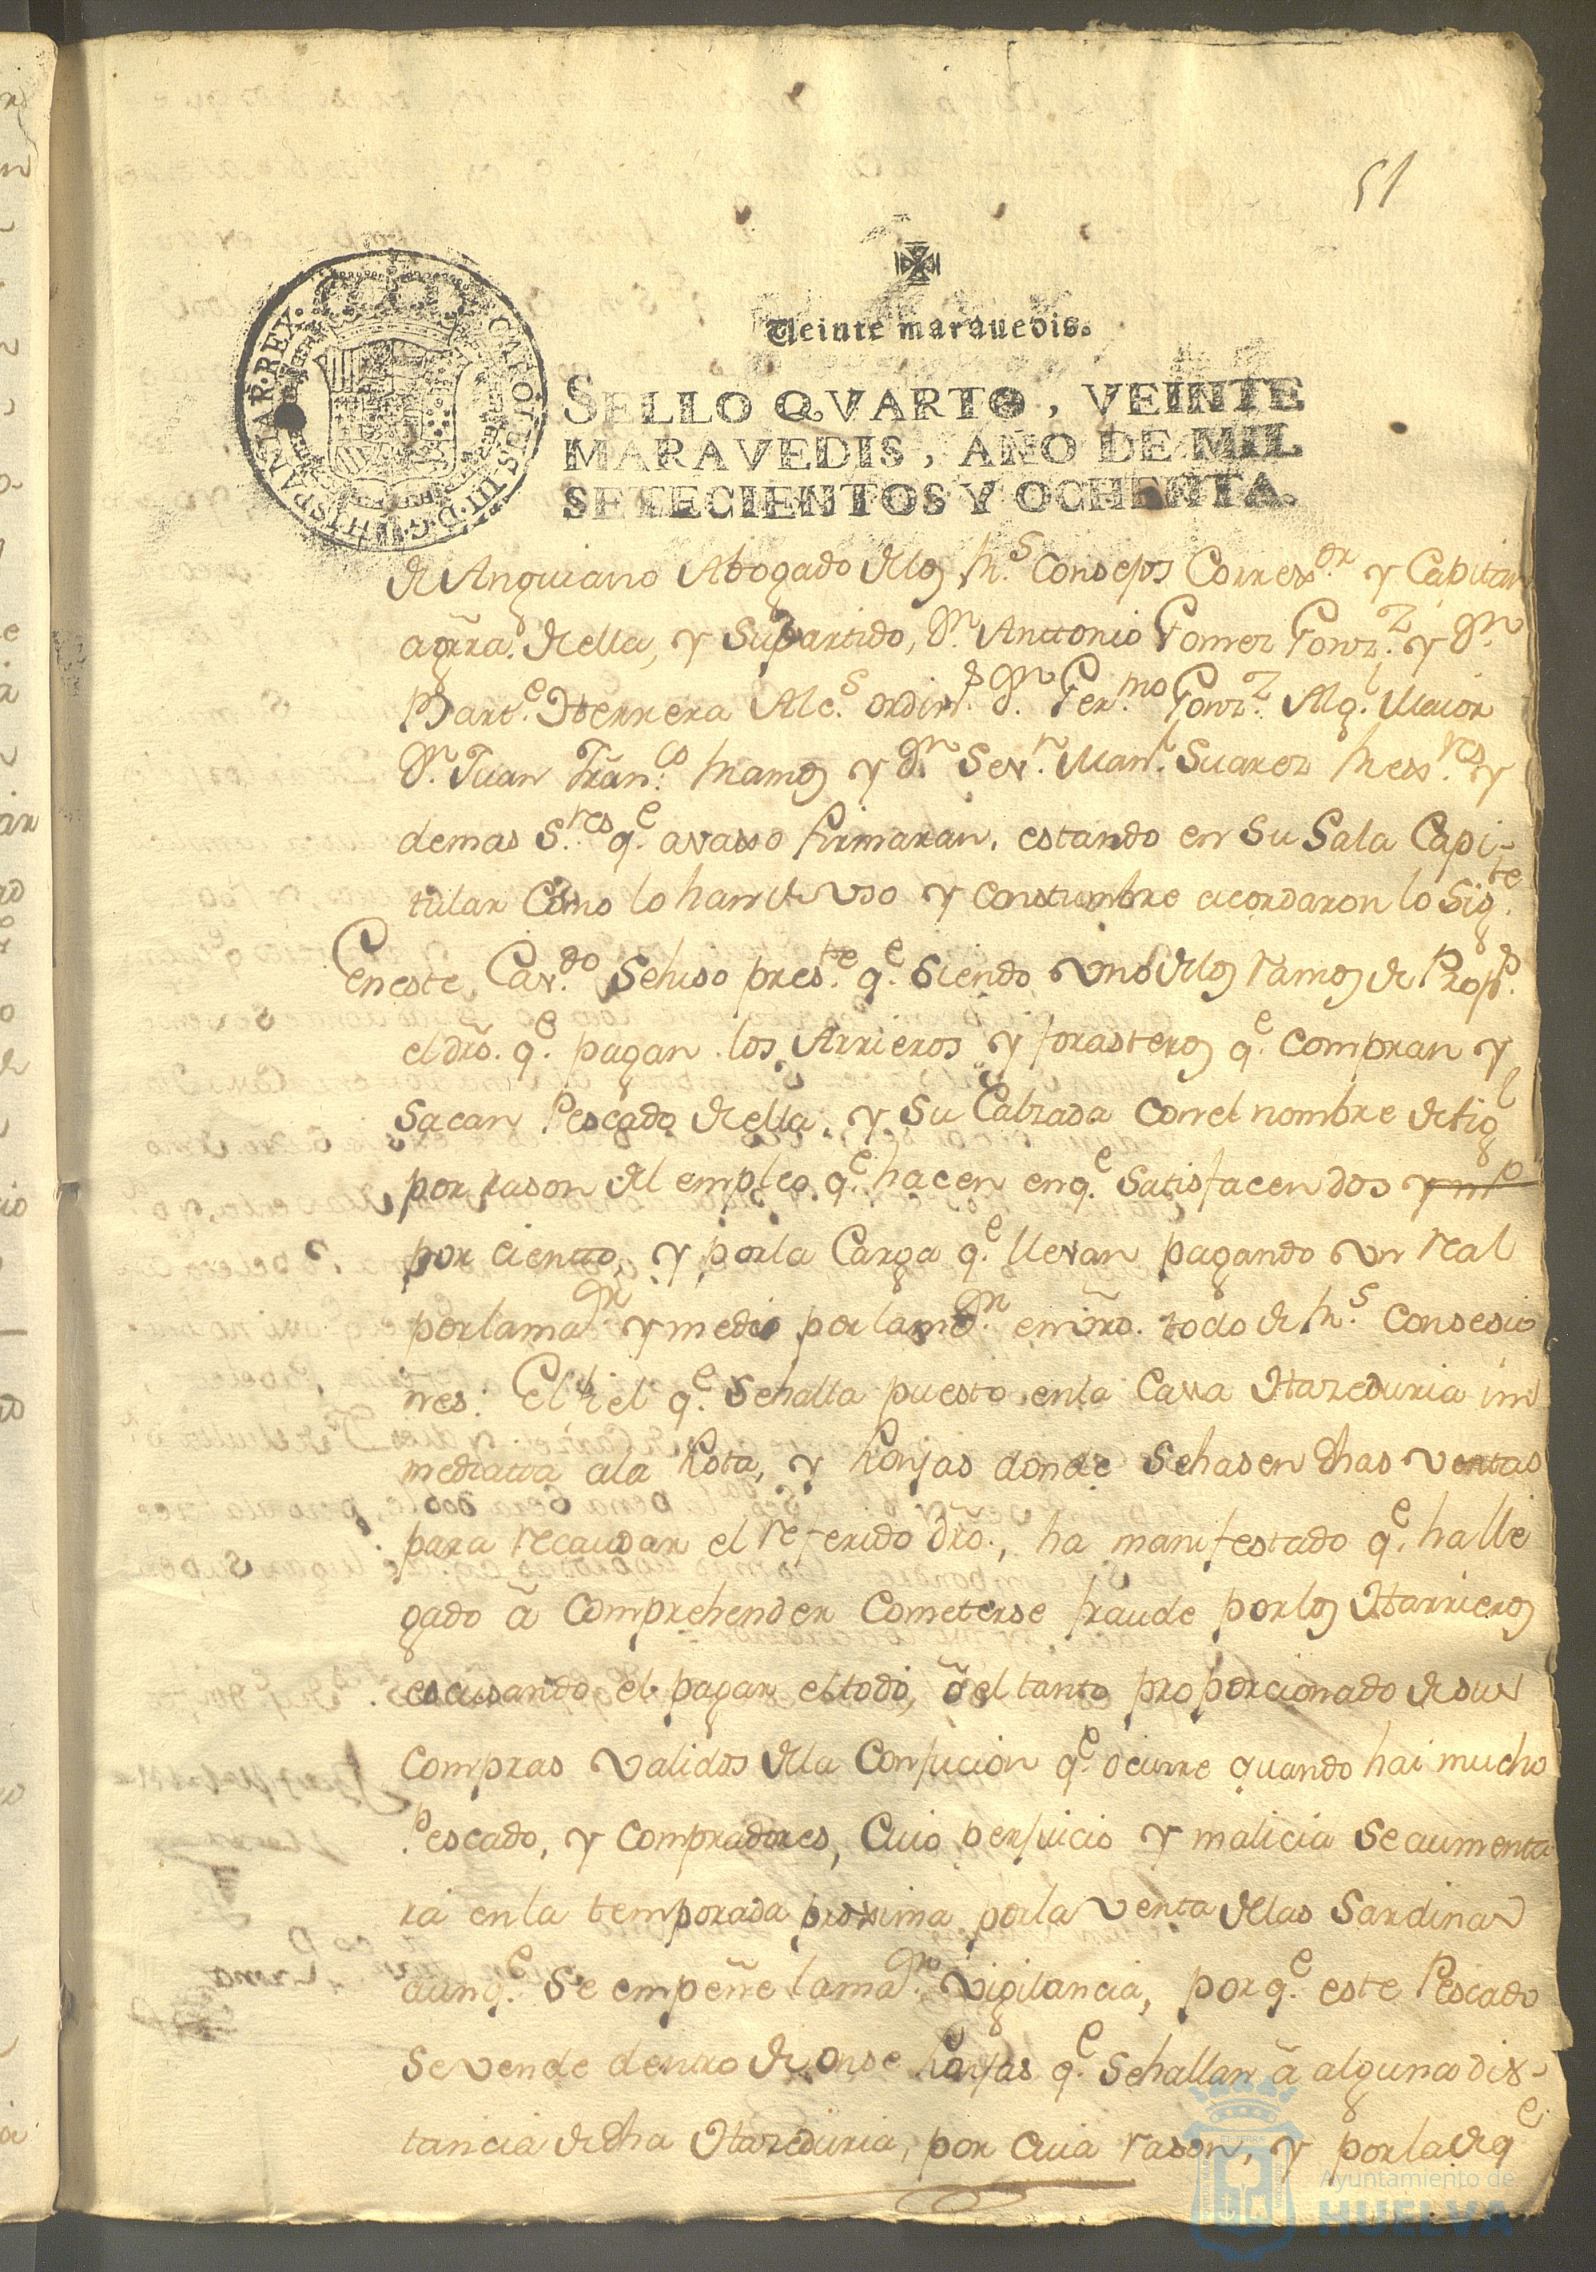 51
Veinte marauedis.
SELLO QVARTO, VEINTE
MARAVEDIS, AÑO DE MIL
SETECIENTOS Y OCHENTA.
CAROLUS·III·D·G·HISPANIAR·REX·
de Anguiano Abogado delos Rs. Consejos Correxor. y Capitan
aGrra. de ella, y Supartido, Dn. Anttonio Gomez Gonzz. y Dn.
Barte. Herrera Alcs. ordins. Dn. Germo. Gonzz. Algl. Maior
Dn. Juan Franco. Ramos y Dn. Sevn. Manl. Suarez Rexres. y
demas Sres. qe. avaxo firmaran, estando en Su Sala Capi-
tular Como lo han de vso y Constumbre acordaron lo Sigte.
En este Cavdo. Sehiso preste. qe. siendo vno delos ramos de Props.
el dro. qe. pagan los Arrieros y forasteros qe. compran y
Sacan Pescado de ella, y Su Calzada con el nombre de figl
por rason del empleo qe. hacen en qe. Satisfacen dos y mo
por ciento, y por la Carga qe. llevan pagando un real
por la maor. y medio por la menor. en mro. todo de Rs. Consesio
nes: El fiel qe. Sehalla puesto en la Casa Hazeduria im
mediata ala Rota, y Lonjas donde Sehasen dhas ventas
para recaudar el referido dro., ha manifestado qe. ha lle
gado â Comprehender Cometerse fraude por los Harrieros
escusando el pagar el todo, ô el tanto proporcionado de sus
Compras validos dela Confucion qe. ocurre quando hai mucho
Pescado, y Compradores, Cuio perjuicio y malicia Se aumenta
rá en la temporada proxima por la venta delas Sardinas
aunqe. Se empeñe la maor. vigilancia, por qe. este Pescado
Se vende dentro de onse Lonjas qe. Sehallan â alguna dis-
tancia de dha Hazeduria, por Cuia rason, y por la de qe
Ayuntamiento de
HUELVA